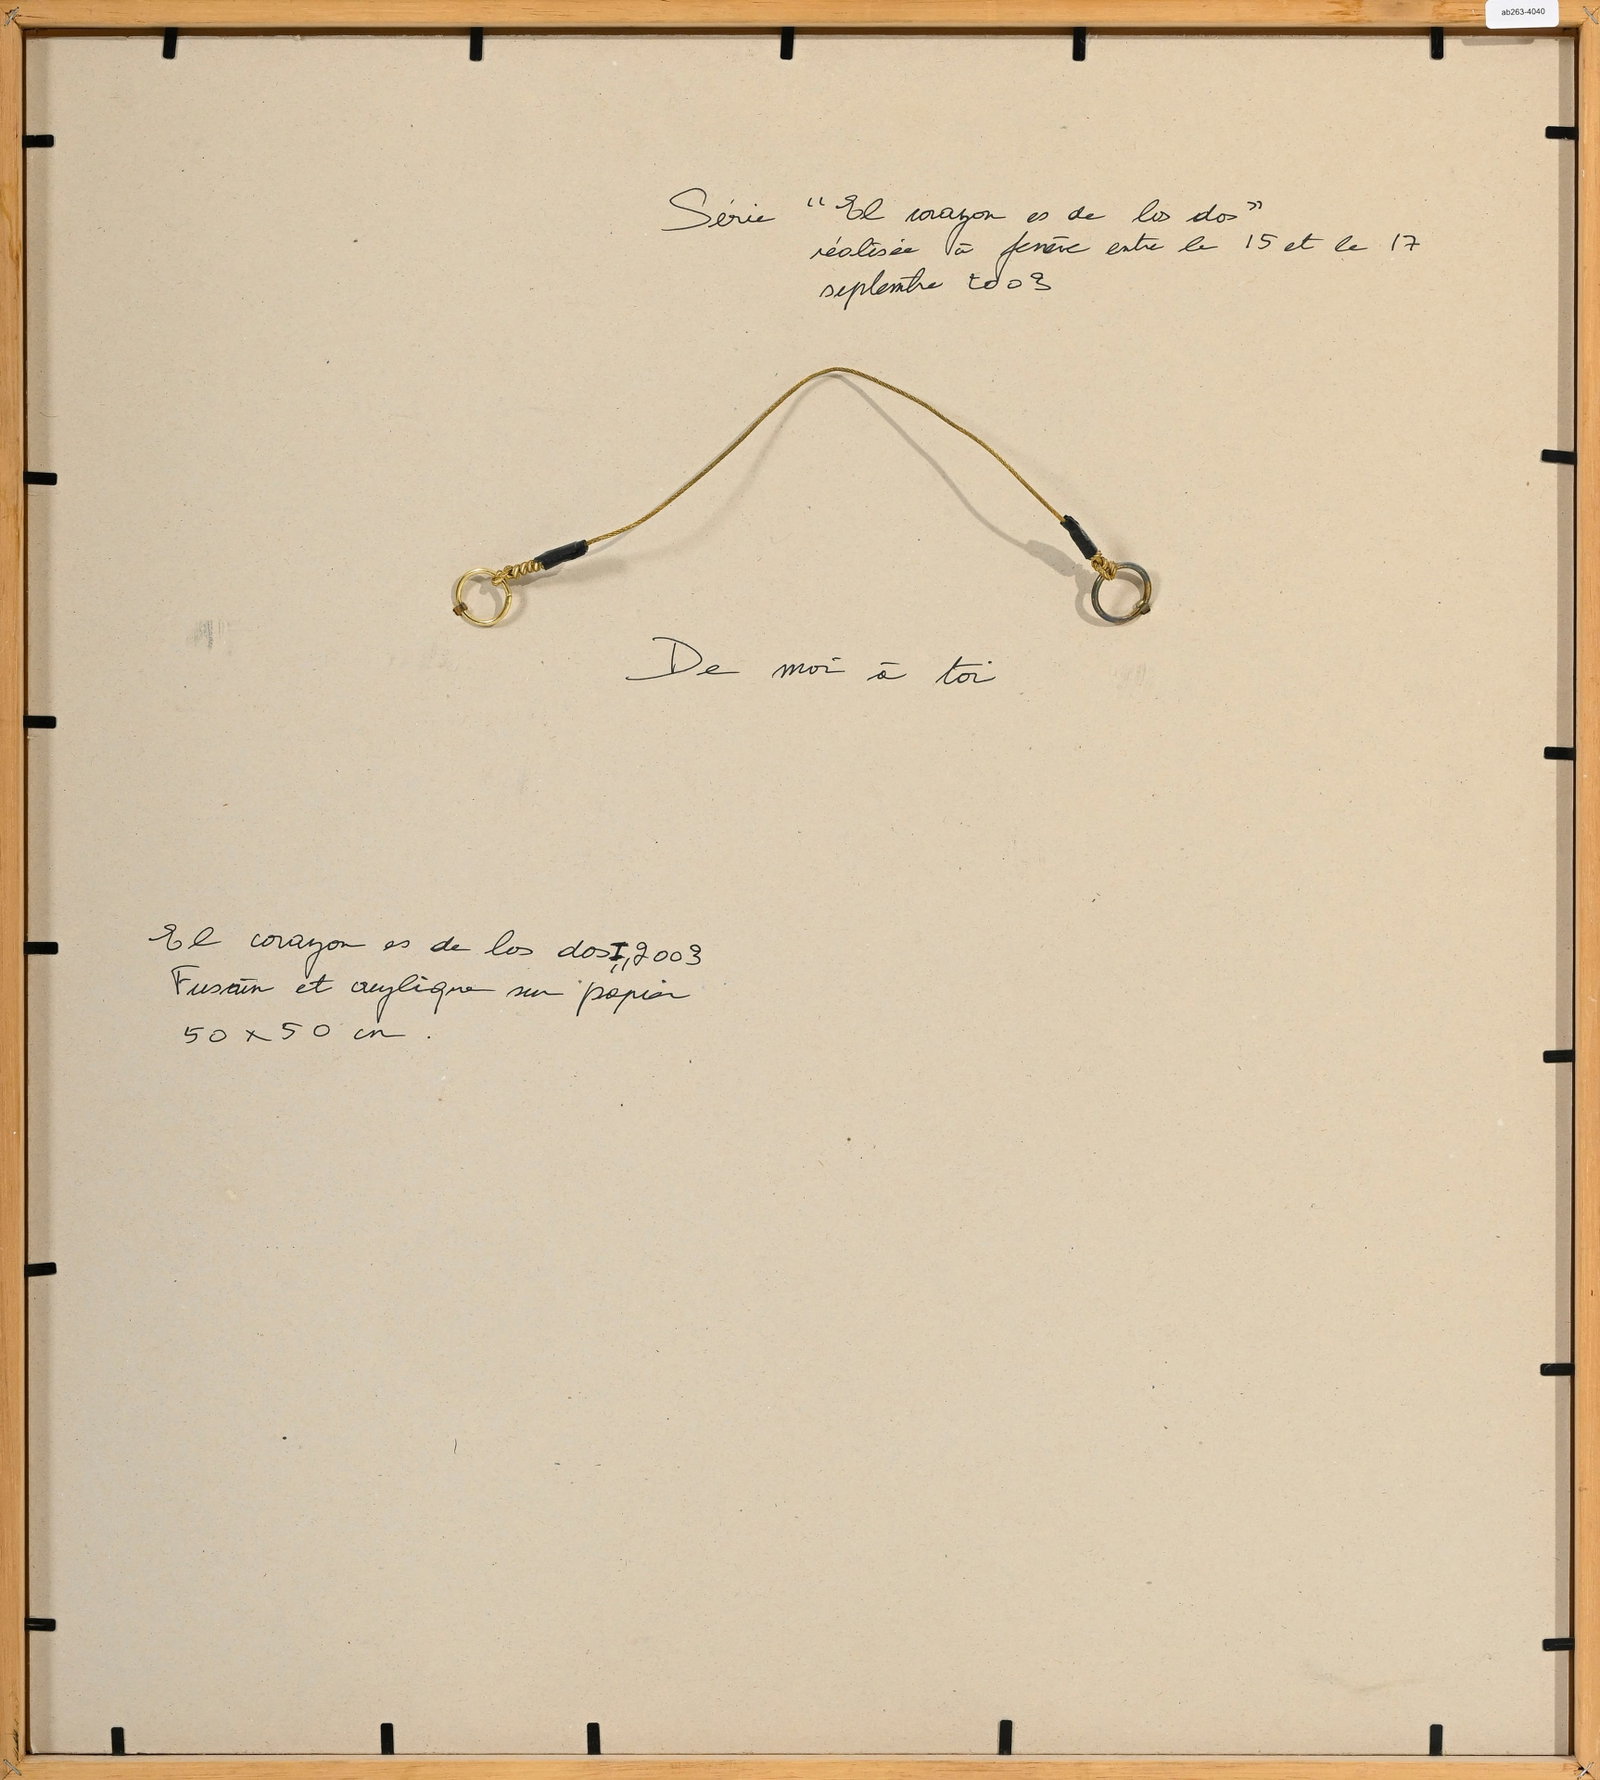 ab263-4040
Série "El corazon es de los dos"
réalisée à Genève entre le 15 et le 17
septembre 2003
De moi à toi
El corazon es de los dos I, 2003
Fusain et acrylique sur papier
50 x 50 cm.